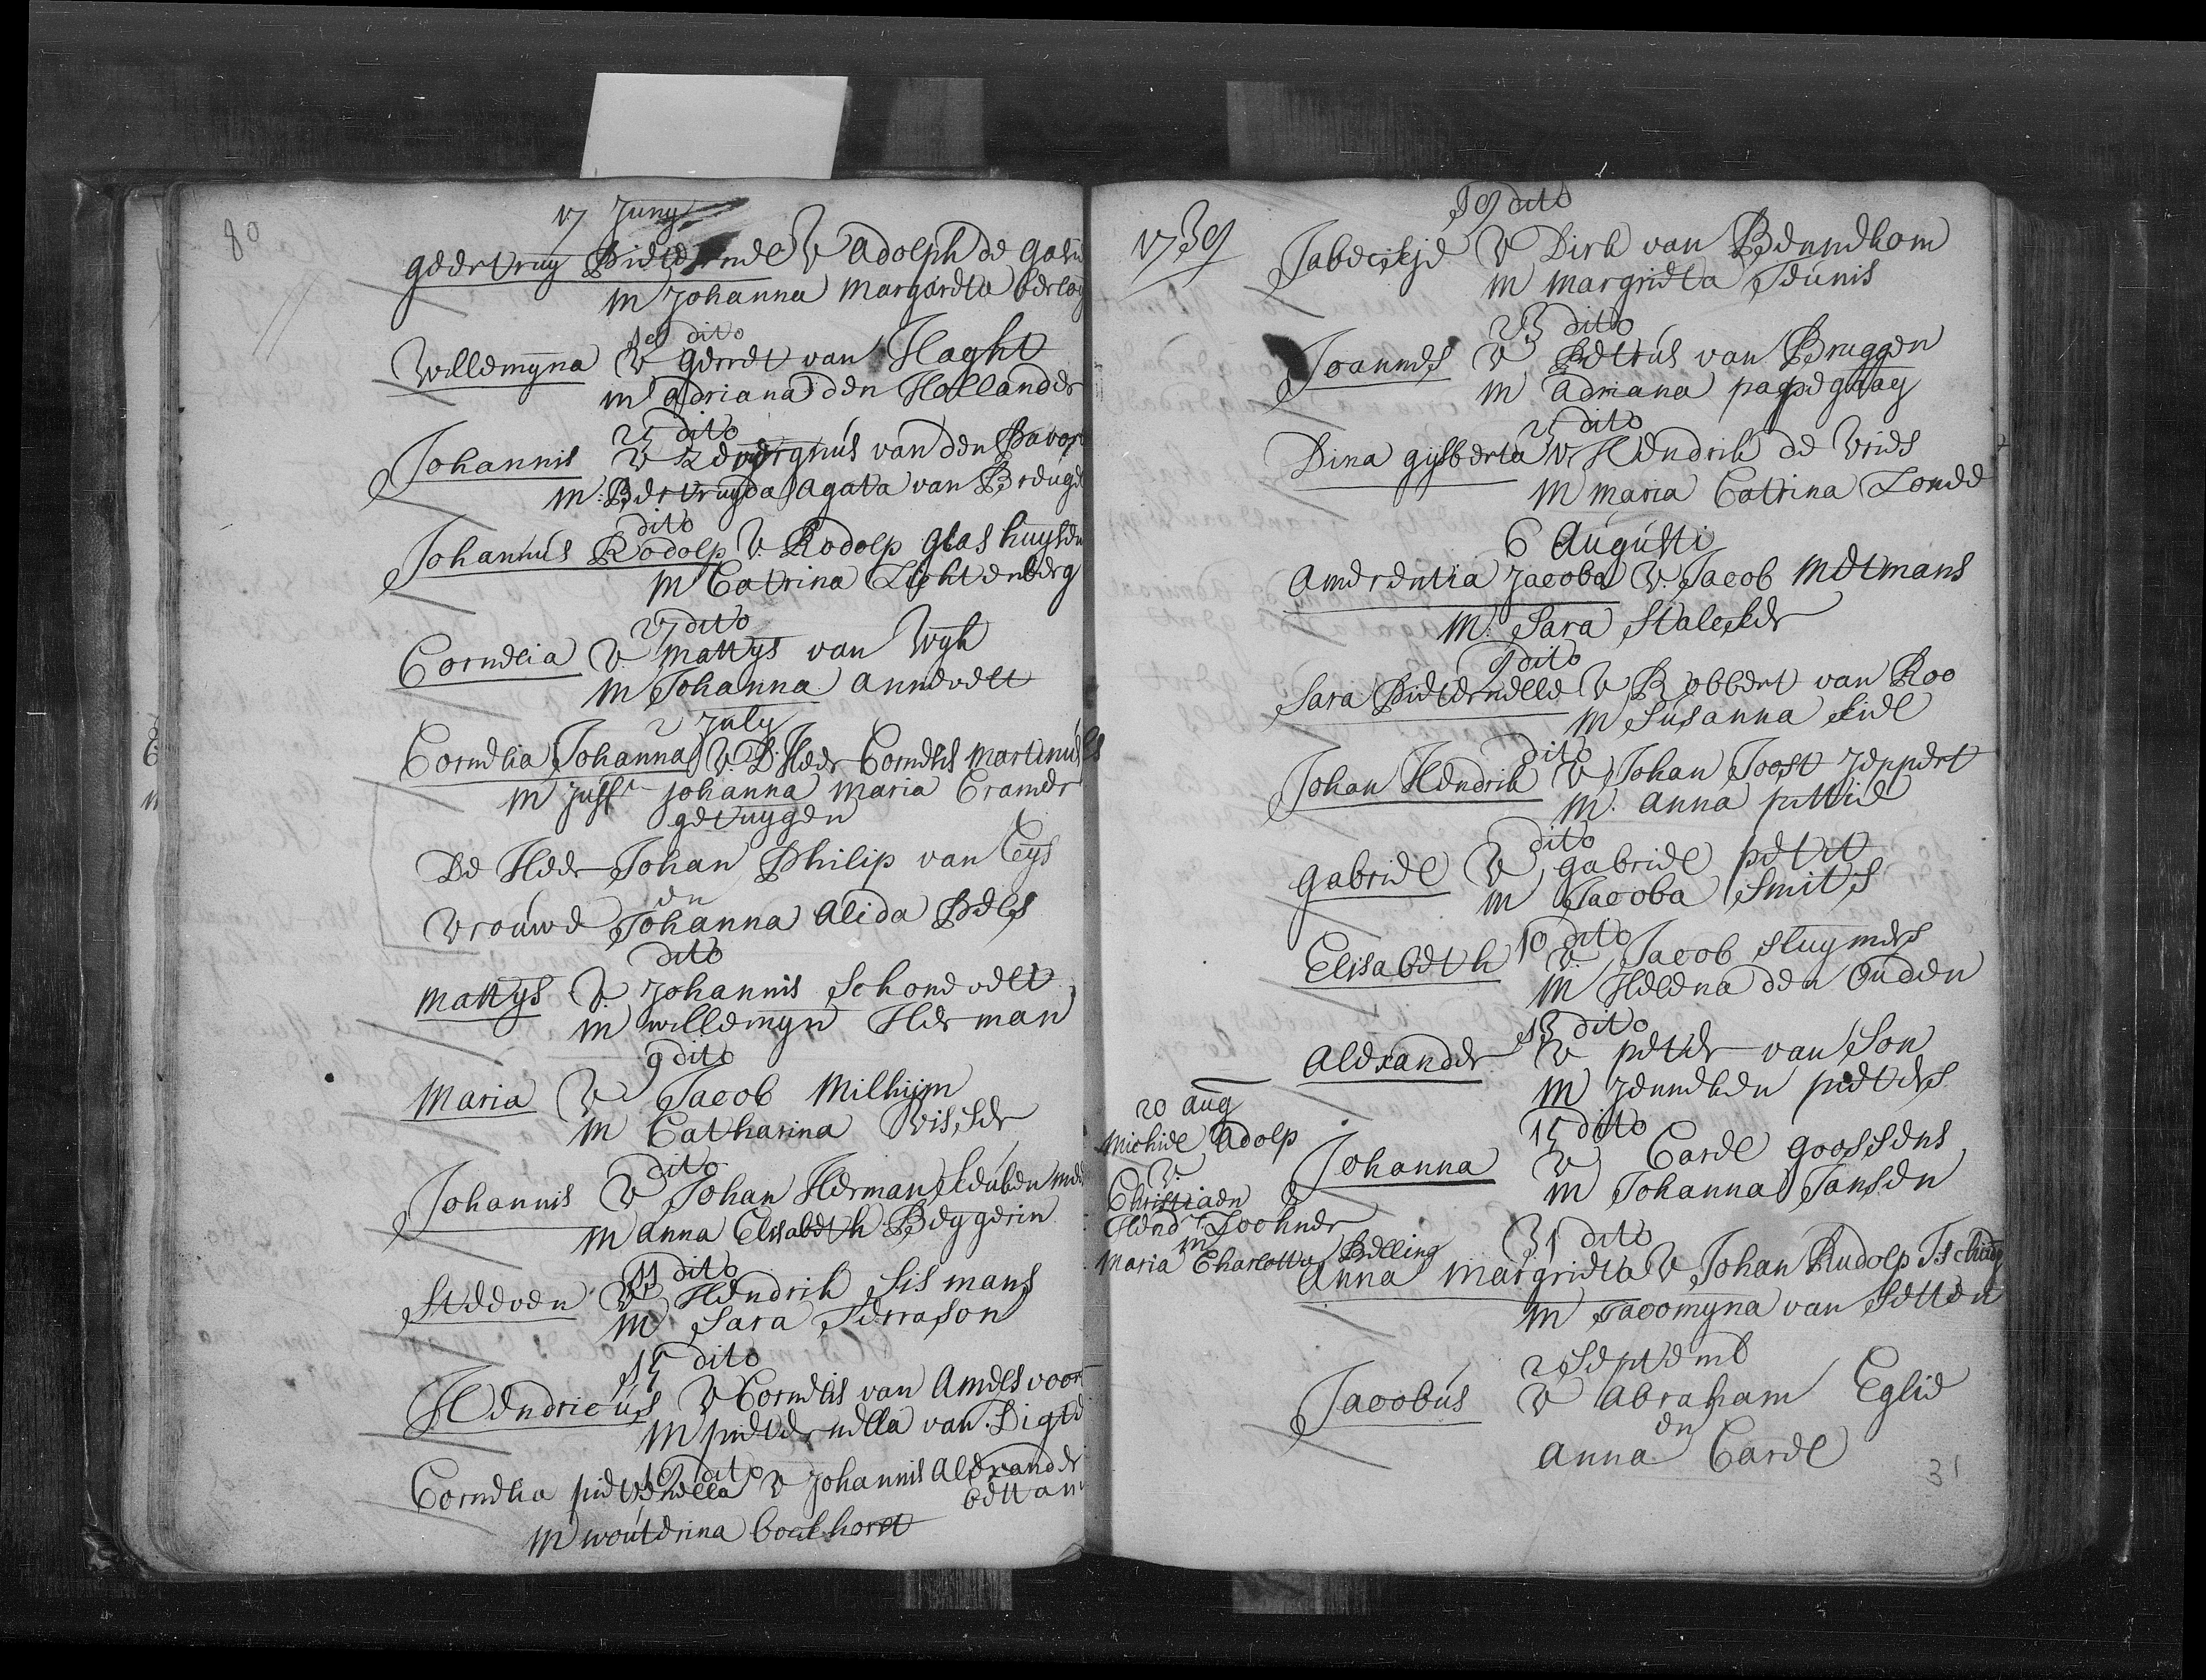 80
17 Juny
geertruy Pieternel V Adolph de
M Johanna Margareta
19 dito
Willemyna V gerret van Haght
M adriana den Hollander
25 dito
Johannis V van den
M: Bertruyda Agata van
dito
Johannús Rodolp V. Rodolp glashuysen
M Catrina Lichtenberg
27 dito
Cornelia V Mattys van Wyk
M Johanna annevelt
2 July
Cornelia Johanna V. D. Heer Cornelis Martinús
M Juffr Johanna Maria Cramer
getuygen
De Heer Johan Philip van Eys
en
Vrouwe Johanna Alida Pels
dito
Mattys V. Johannis Schonevelt
M willemyn Herman
9 dito
Maria V Jacob Milhijm
M Catharina Visser
dito
Johannis V Johan Herman
M anna Elisabeth Beyggerin
11 dito
Steeven V Hendrik Sismans
M Sara Serrason
15 dito
Hendricús V Cornelis van Amesvoort
M pieternella van Digte
19 dito
Cornelia pieternella V Johannis Alexander
M wouterina bockhorst
1739
19 dito
V Dirk van Bennekom
M Margrieta Teunis
23 dito
Joannes V Petrús van Bruggen
M Adriana papegaay
25 dito
Dina gysberta V Hendrik de Vries
M Maria Catrina Loudee
6 Augústi
Amerentia Jacoba V. Jacob Metmans
M. Sara Stalesker
9 dito
Sara Pieternelle V Robbert van Roo
M Súsanna
dito
Johan Hendrik V Johan Joost Jennert
M. anna pittie
dito
gabriel V gabriel petit
M Jacoba Smits
10 dito
Elisabeth V. Jacob Sluymers
M Helena den Ouden
13 dito
Alexander V peter van Son
M Jenneken pieters
15 dito
Johanna V Carel goossens
M Johanna Jansen
20 aug
Michiel Adolp
V.
Christiaen
Hend Lochner
M
Maria Charlotta Belling
31 dito
Anna Margrieta V Johan Rudolp
M Jacomyna van Setten
2 Septemb
Jacobús V Abraham Eglie
en
Anna Carel
31